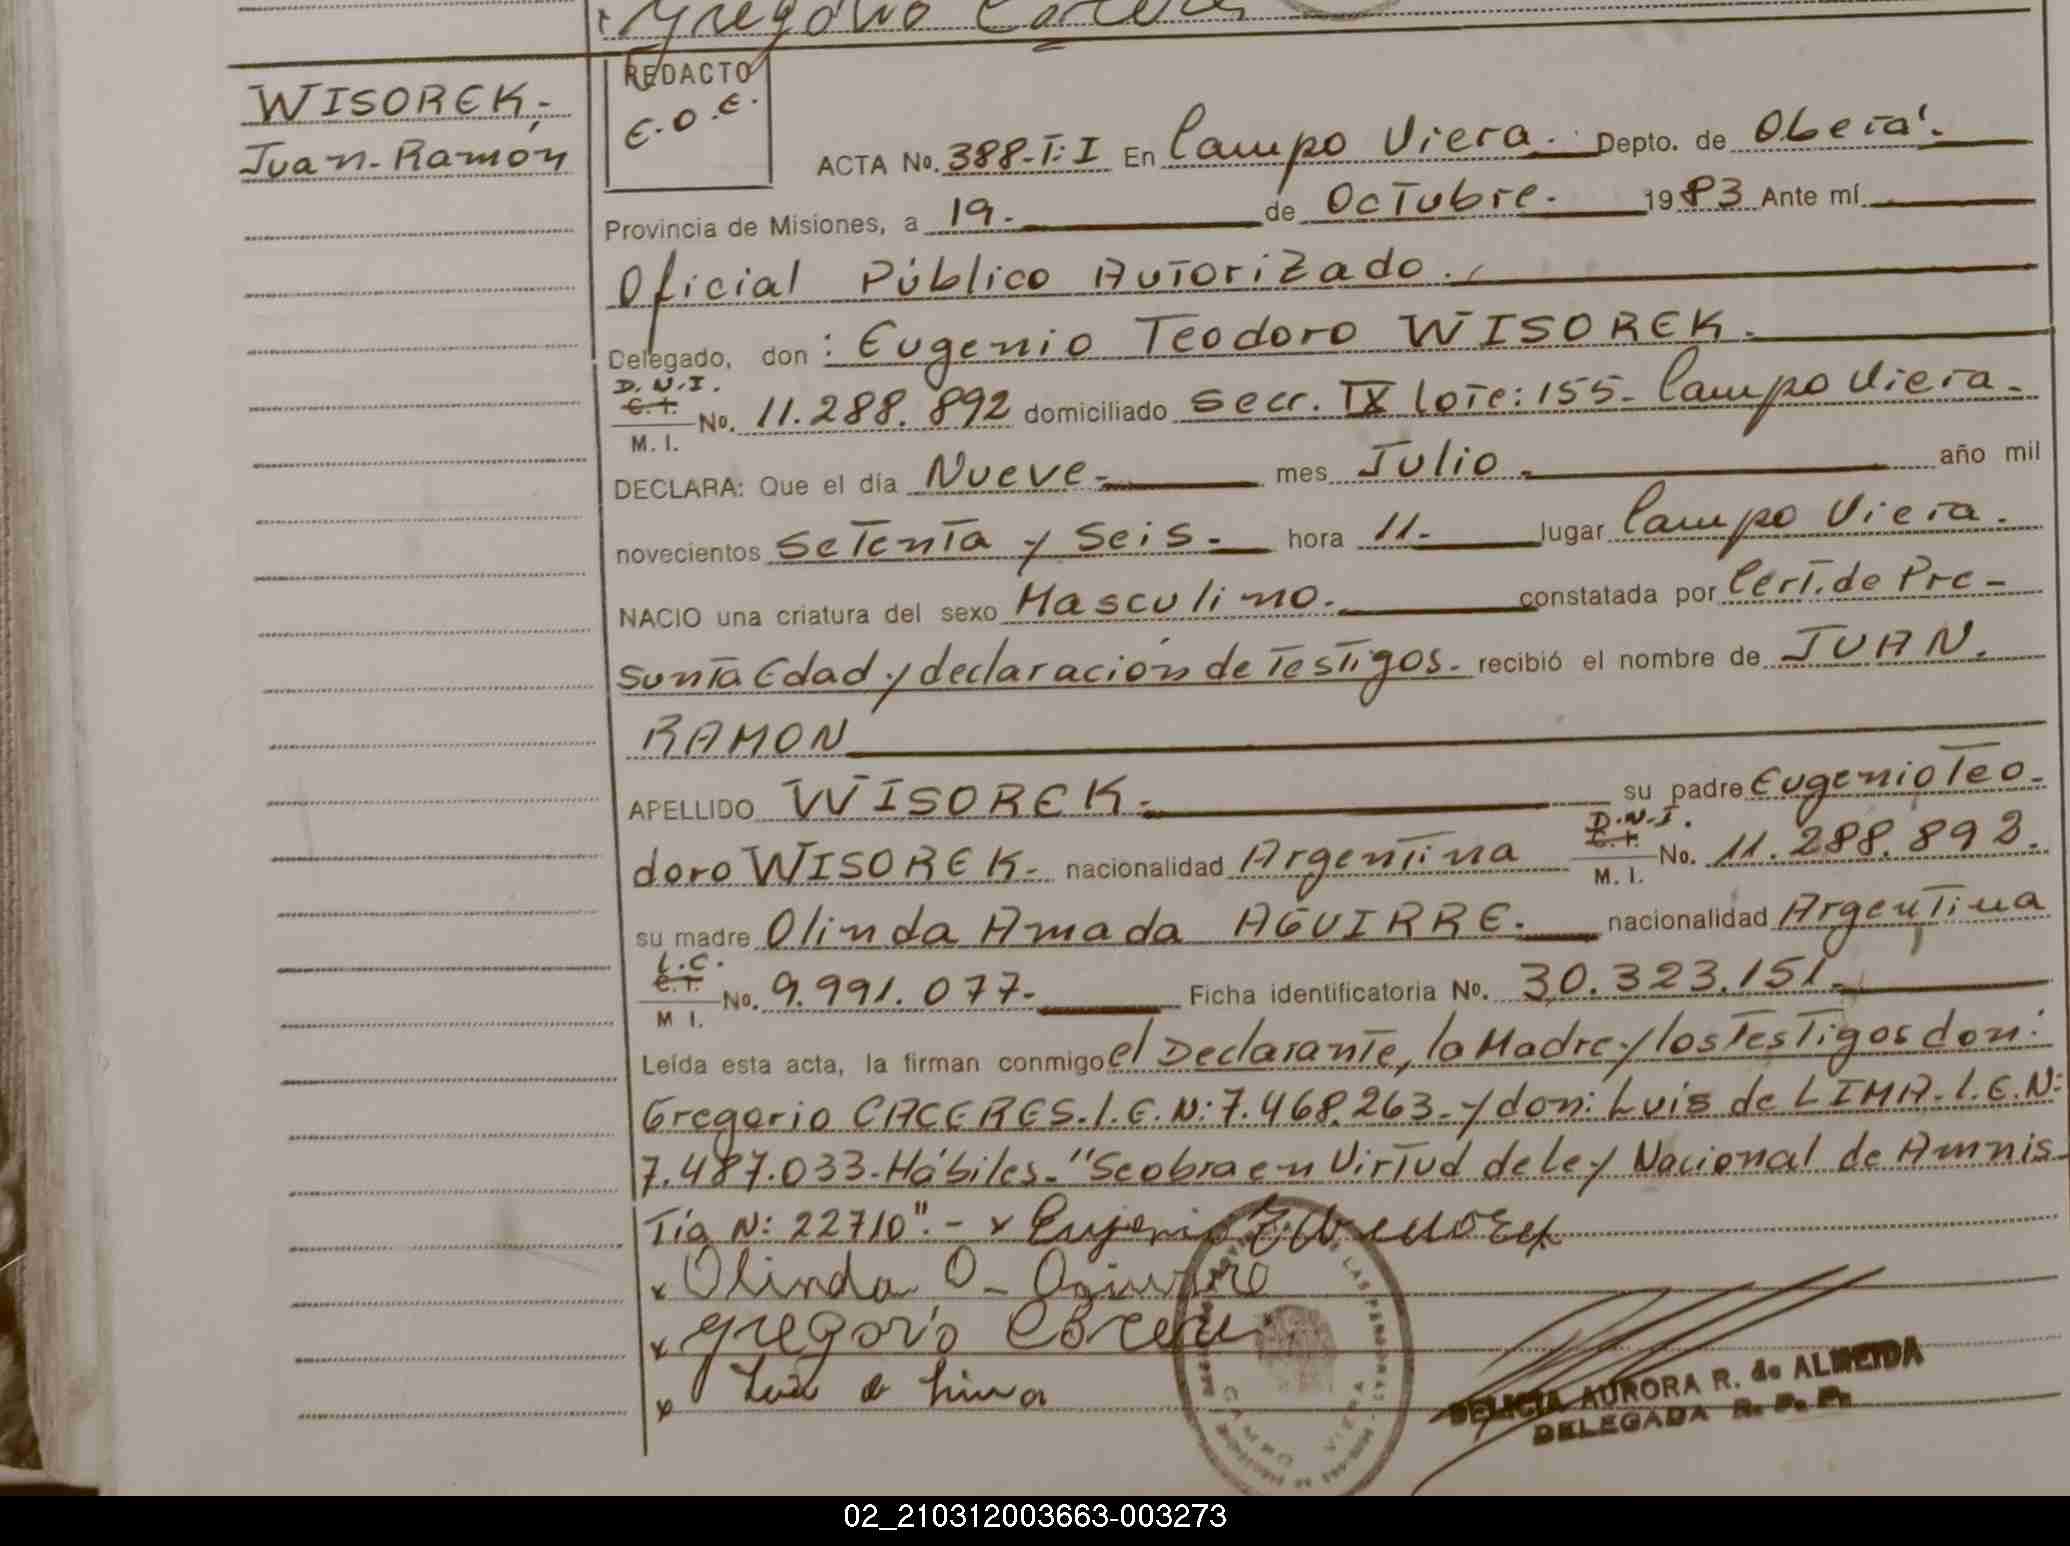 Gregorio
WISOREK,-
Juan-Ramón
REDACTO
E.O.E.
ACTA No. 388-T:I En Campo Viera. Depto. de Oberá.
Provincia de Misiones, a 19. de Octubre. 1983 Ante mí
Oficial Público Autorizado.
Delegado, don: Eugenio Teodoro WISOREK.
D.N.I.
C.I. No. 11.288.892 domiciliado Secc. IX Lote: 155- Campo Viera.
M. I.
DECLARA: Que el día Nueve- mes Julio. año mil
novecientos Setenta y Seis. hora 11. lugar Campo Viera.
NACIO una criatura del sexo Masculino. constatada por Cert. de Pre-
sunta Edad y declaración de Testigos. recibió el nombre de JUAN.
RAMON
APELLIDO WISOREK. su padre Eugenio Teo-
D.N.I.
doro WISOREK. nacionalidad Argentina C.I. No. 11.288.892.
M. I.
su madre Olinda Amada AGUIRRE. nacionalidad Argentina
L.C.
C.I. No. 9.991.077- Ficha identificatoria No. 30.323.151.
M I.
Leída esta acta, la firman conmigo el Declarante, la Madre y los Testigos don:
Gregorio CACERES. L.E.N: 7.468.263.- y don: Luis de LIMA. L.E.N:
7.487.033- Hábiles.- "Se obra en Virtud de Ley Nacional de Amnis-
tía N: 22710".- x Eugenio
x Olinda
x Gregorio
x
CAMPO VIERA
DELICIA AURORA R. de ALMEIDA
DELEGADA R. P. P.
02_210312003663-003273